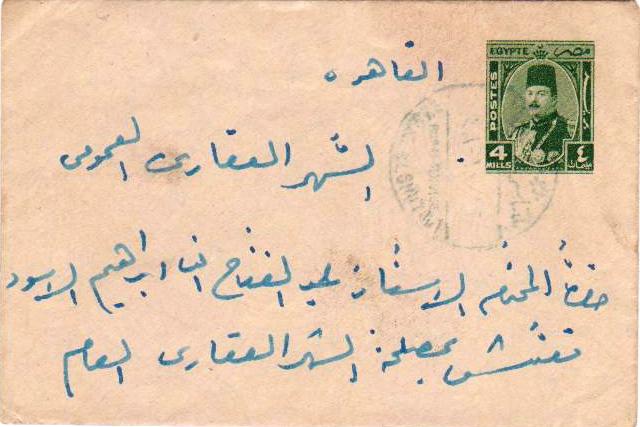 EGYPTE مصر
POSTES
4 MILLS
٤
القاهره
الشهر العقارى العمومى
حضرة المحترم الاستاذ عبد الفتاح ابراهيم الاسود
تفتيش بمصلحة الشهر العقارى العام